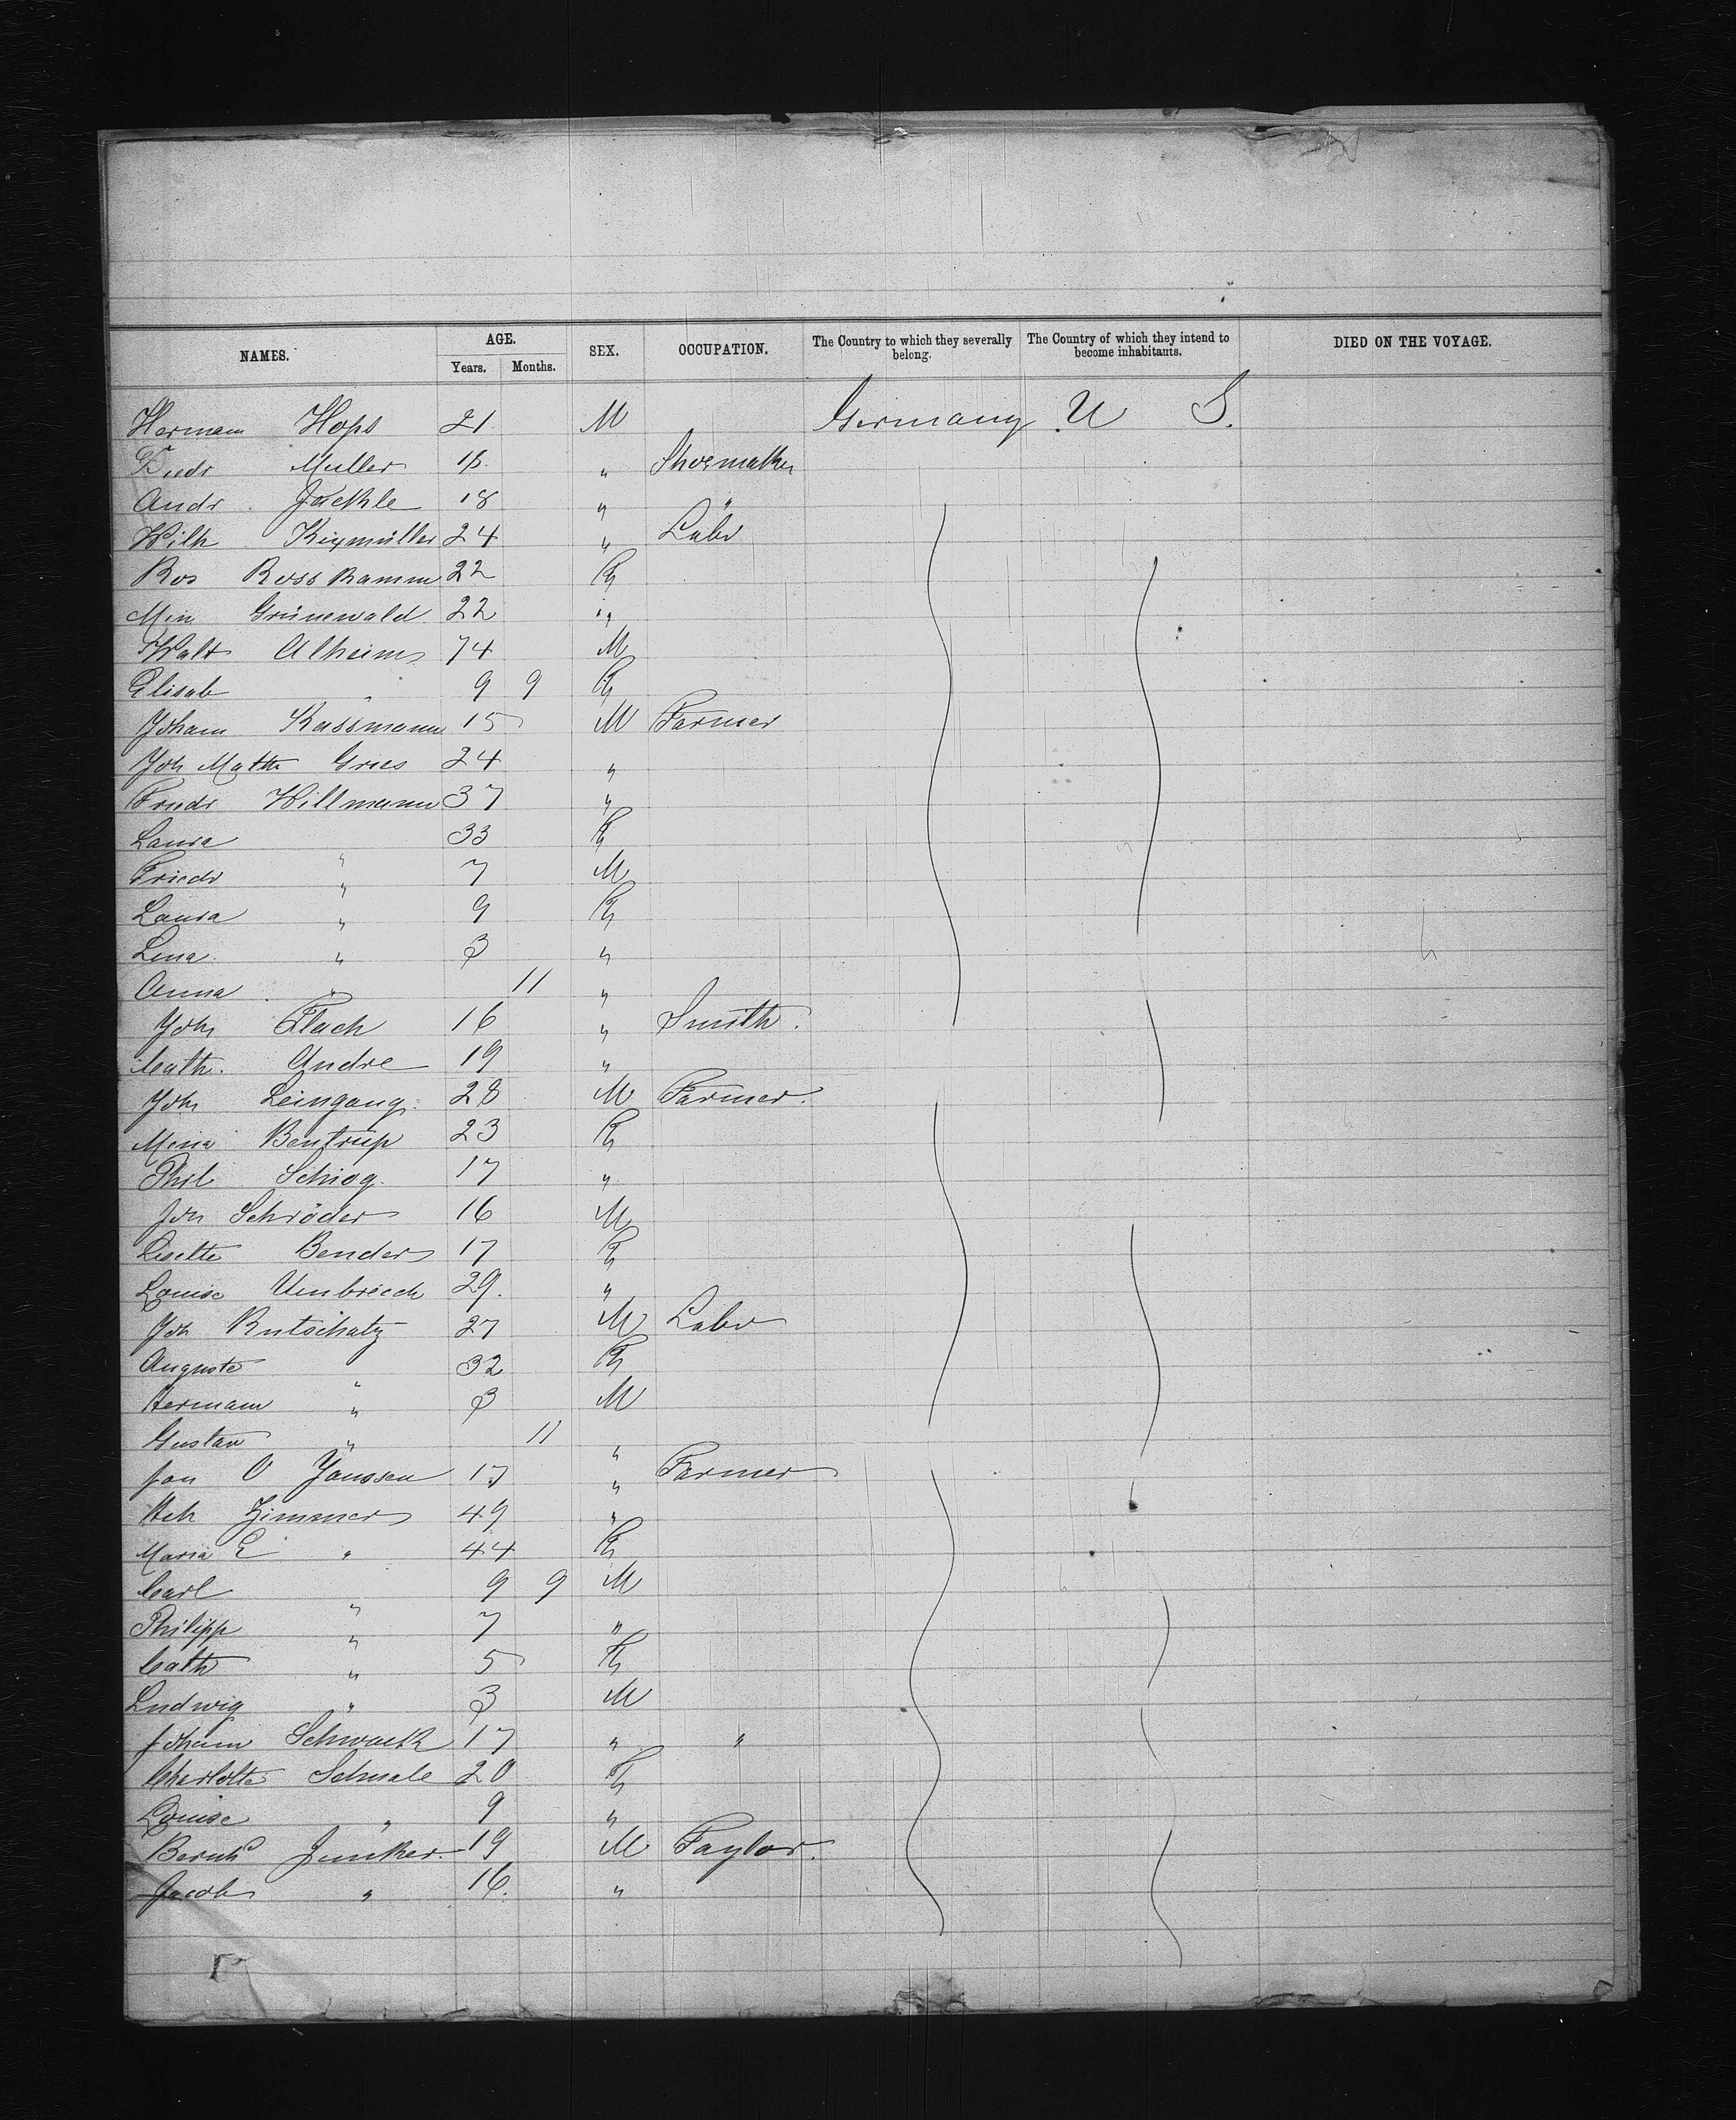 NAMES. AGE. Years. Months. SEX. OCCUPATION. The Country to which they severally belong. The Country of which they intend to become inhabitants. DIED ON THE VOYAGE.
Hermann Hops 21 M Germany U S.
Friedr Muller 18 " Shoemaker
Andr Jäckle 18 " "
Wilh 24 " Labr
Ros Ross Kamm 22 F
Min Grünewald 22 "
Walt Alheim 74 M
Elisab " 9 9 F
Johann Kassmann 15 M Farmer
Joh Math Gries 24 "
Friedr Hillmann 37 "
Laura " 33 F
Friedr " 7 M
Laura " 9 F
Lina " 3 "
Anna " 11 "
Joh Flach 16 " Smith.
Cath. Andre 19 "
Joh Leingang 28 M Farmer.
Mina Bentrup 23 F
Phil 17 "
Joh Schröder 16 M
Lisette Bender 17 F
Louise Umbreich 29. "
Joh Rutschatz 27 M Labr
Auguste " 32 F
Hermann " 3 M
Gustav " 11 "
Jan O Janssen 17 " Farmer
Hch Zimmer 49 "
Maria E " 44 F
Carl " 9 9 M
Philipp " 7 "
Cath " 5 F
Ludwig " 3 M
Johann Schwack 17 " "
Charlotte Schnale 20 F
Louise " 9 "
Bernhd Junker 19 M Taylor.
Jacob " 16. "